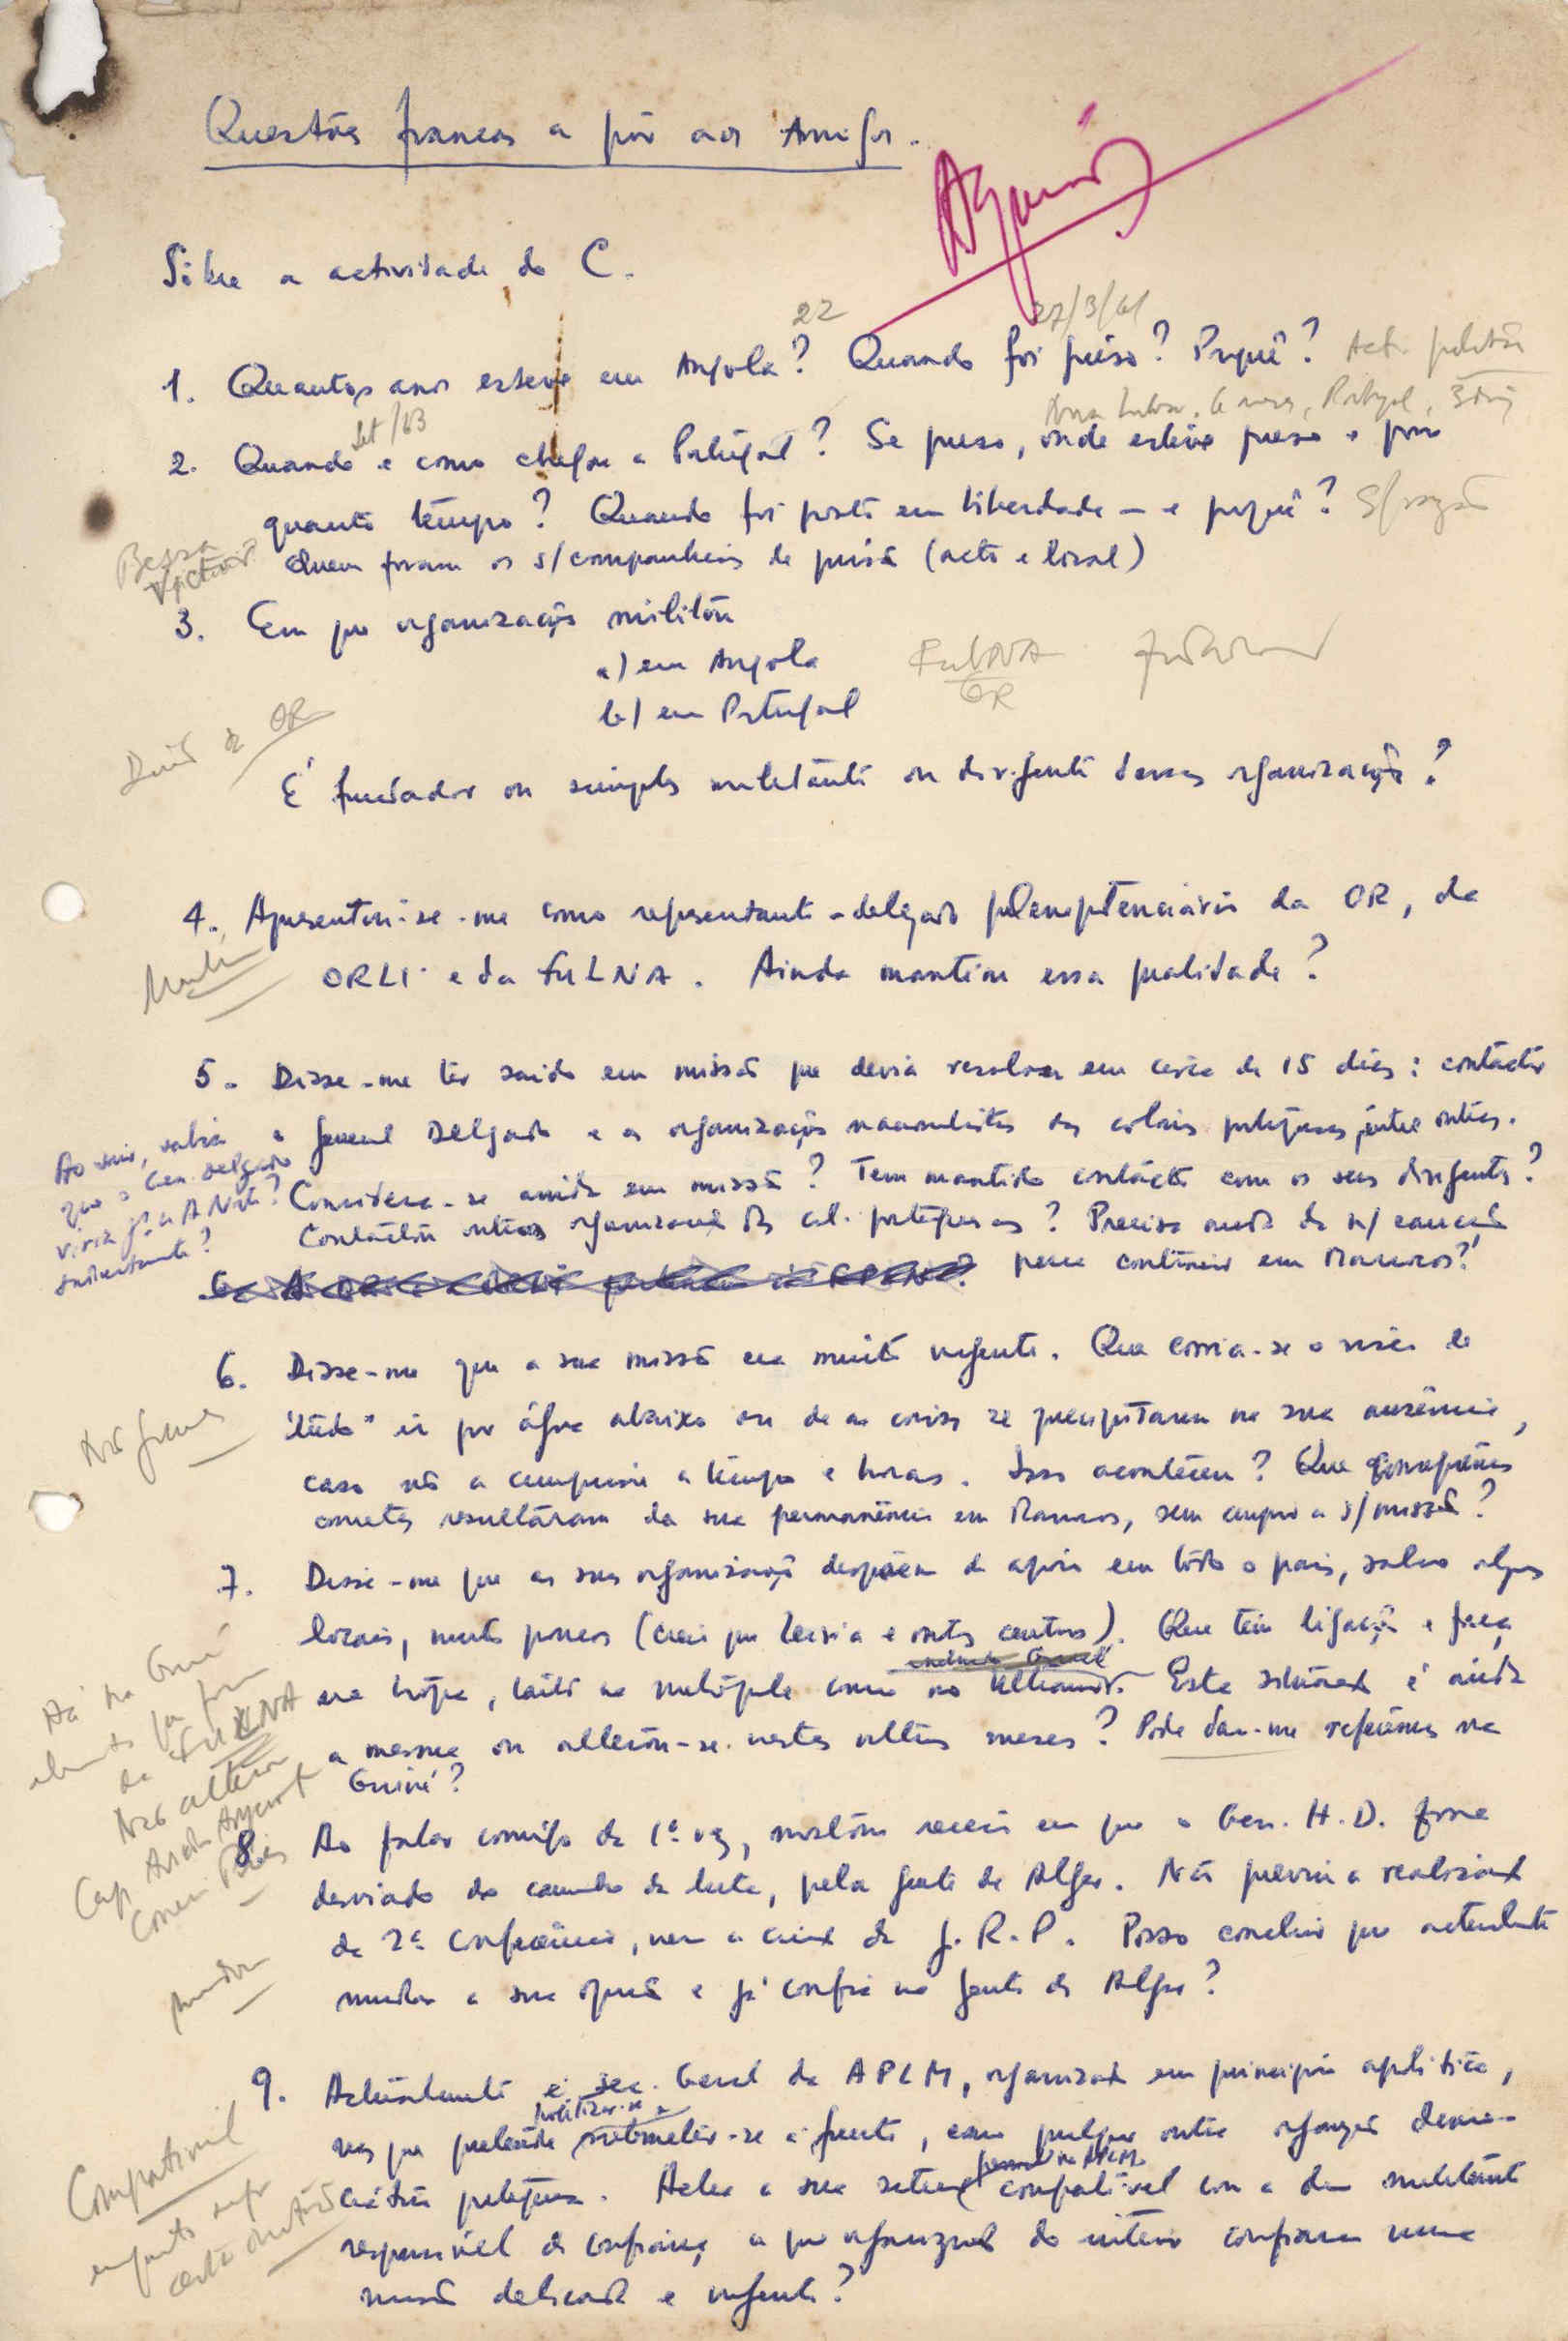 Questões francas a pôr aos Amigos.
Sôbre a actividade do C.
22
27/3/61
1. Quantos anos esteve em Angola? Quando foi prêso? Porquê?
Set/63
6 meses, Portugal, 3 dias
2. Quando e como chegou a Portugal? Se preso, onde esteve preso e por
quanto tempo? Quando foi posto em liberdade - e porquê? S/razão
Quem foram os s/companheiros de prisão (acto e local)
3. Em que organizações militou
a) em Angola FULNA
OR
b) em Portugal
É fundador ou simples militante ou dirigente dessas organizações?
4. Apresentou-se-me como representante-delegado plenipotenciário da OR, da
ORLI e da FULNA. Ainda mantém essa qualidade?
5. Disse-me ter saído em missão que devia resolver em cerca de 15 dias: contactar
o general Delgado e as organizações nacionalistas das colónias portuguesas, entre outras.
Ao sair, sabia
que o Gen. Delgado
viria p.a A. Norte?
Considera-se ainda em missão? Tem mantido contacto com os seus dirigentes?
Contactou outras organizações das col. portuguesas? Precisa ainda da n/
para continuar em Marrocos?
6. Disse-me que a sua missão era muito urgente. Que corria-se o risco de
"tudo" ir por água abaixo ou de as coisas se precipitarem na sua ausência,
caso não a cumprisse a tempo e horas. Isso aconteceu? Que consequências
concretas resultaram da sua permanência em Marrocos, sem cumprir a s/missão?
7. Disse-me que as suas organizações dispõem de apoio em todo o país, salvo alguns
locais, muito poucos (creio que Leiria e outros centros). Que tem ligação e força
na tropa, tanto na metrópole como no Ultramar. Esta situação é ainda
a mesma ou alterou-se nestes últimos meses? Pode dar-me referências na
Guiné?
Há na Guiné
da FULNA
Não altera
8. Ao falar comigo da 1ª vez, mostrou receio em que o Gen. H.D. fosse
desviado do caminho da luta, pela gente de Alger. Não previu a realização
da 2ª Conferência, nem a criação da J.R.P. Posso concluir que actualmente
mudou a sua opinião e já confia na gente de Alger?
mudou
9. Actualmente é sec. Geral da APLM, organização em princípio apolítica,
mas que pretende submeter-se à frente, com qualquer outra organização demo-
crática portuguesa. Acha a sua situação pessoal na APLM compatível com a dum militante
responsável de confiança a que organizações do interior confiaram uma
missão delicada e urgente?
Compatível
enquanto